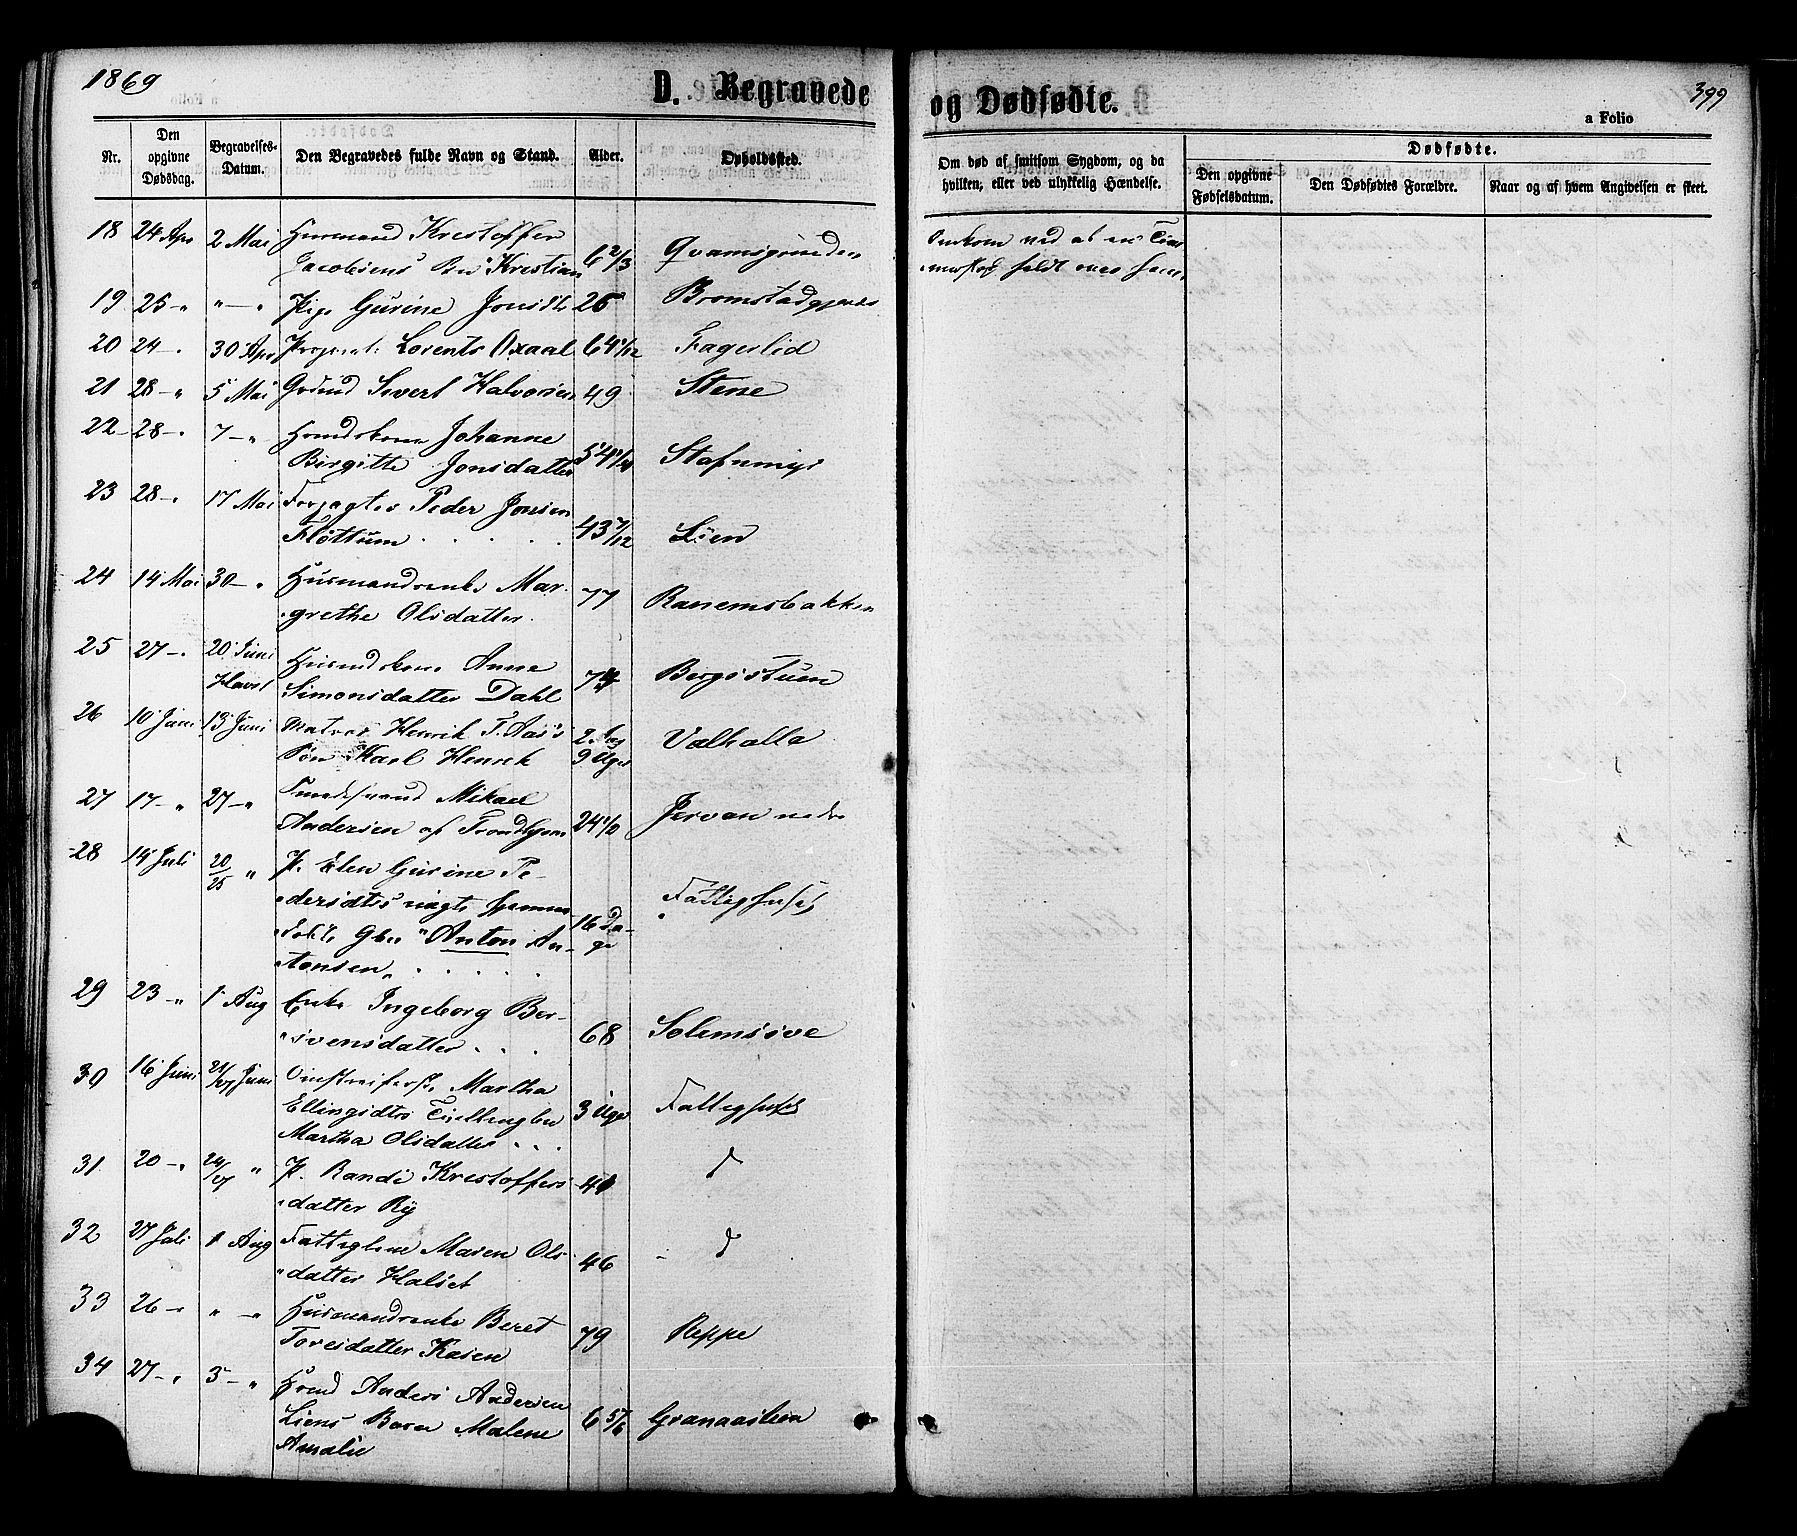 1869
D. Begravede
og Dødfødte.
399
a Folio
Nr.
Den opgivne Dødsdag.
Begravelses-Datum.
Den Begravedes fulde Navn og Stand.
Alder.
Opholdssted.
Om død af smitsom Sygdom, og da
hvilken, eller ved ulykkelig Hændelse.
Dødfødte.
Den opgivne Fødselsdatum.
Den Dødfødtes Forældre.
Naar og af hvem Angivelsen er skeet.
18 24 Apr 2 Mai Husmand Kristoffer
Jacobsens Kristian 6 2/3 Qvamsgrinden
Omkom ved at en
faldt over ham.
19 25 - „ „ - „ Pige Gurine Jonsdt 26 Bromstadgjerdet
20 24 - . 30 Apr Lorents Oxaal 64 1/12 Fagerlid
21 28 - „ 5 Mai Grdmd Sivert Halvorsen 49 Stene
22 28 - . 7 - „ Johanne
Birgitte Jonsdatter 54
23 28 - . 17 Mai Forpagter Peder Jonsen
Fløttum . . . . . 43 7/12 Lien
24 14 Mai 30 - „ Husmandsenke Mar-
grethe Olsdatter. 77 Ranemsbakken
25 27 - . 20 Juni Anne
Simonsdatter Dahl Bergstuen
26 10 Juni 13 Juni Henrik T. Aas's
Søn Karl Henrik 9 Uger Valhalla
27 17 - „ 27 - „ Mikael
Andersen af Trondhjem 24 1/2 Jervan nedre
28 14 Juli 20/25 „ P. Elen Gurine Pe-
dersdtrs
Gbn "Anton An-
tonsen„ . . . . . 16 Da-
ge Fattighuset
29 23 - „ 1 Aug Enke Ingeborg Ber-
„svensdatter . . . 68 Solemsøve
30 16 Juni Juni Martha
Ellingsdtrs Tvillingbn
Martha Olsdatter . . . 3 Uger Fattighuset
31 20 - „ 24/27 „ P. Randi Kristoffers
„datter Ry
32 27 Juli 1 Aug Fattiglem Maren Ols
„datter Halset 46
33 26 - „ „ - „ Husmandsenke Beret
Toresdatter Kasen 79 Reppe
34 27 - „ 3 - „ Anders Andersen
Liens Barn Malene
Amalie 6 5/6 Granaaslien